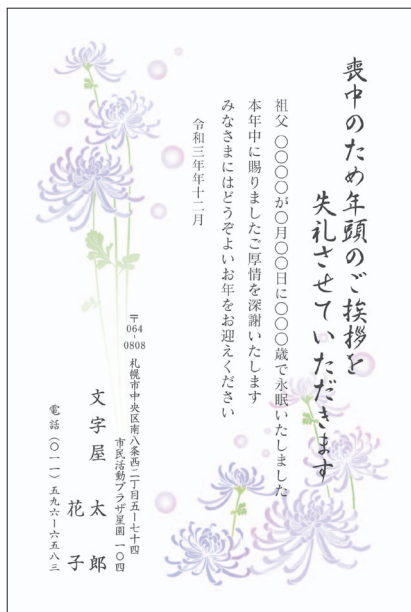 喪中のため年頭のご挨拶を
失礼させていただきます
祖父 〇〇〇〇が〇月〇〇日に〇〇〇歳で永眠いたしました
本年中に賜りましたご厚情を深謝いたします
みなさまにはどうぞよいお年をお迎えください
令和三年年十二月
〒064-0808 札幌市中央区南八条西二丁目五ー七十四
市民活動プラザ星園 一〇四
文字屋 太郎
花子
電話(〇一一)五九六ー六五八三